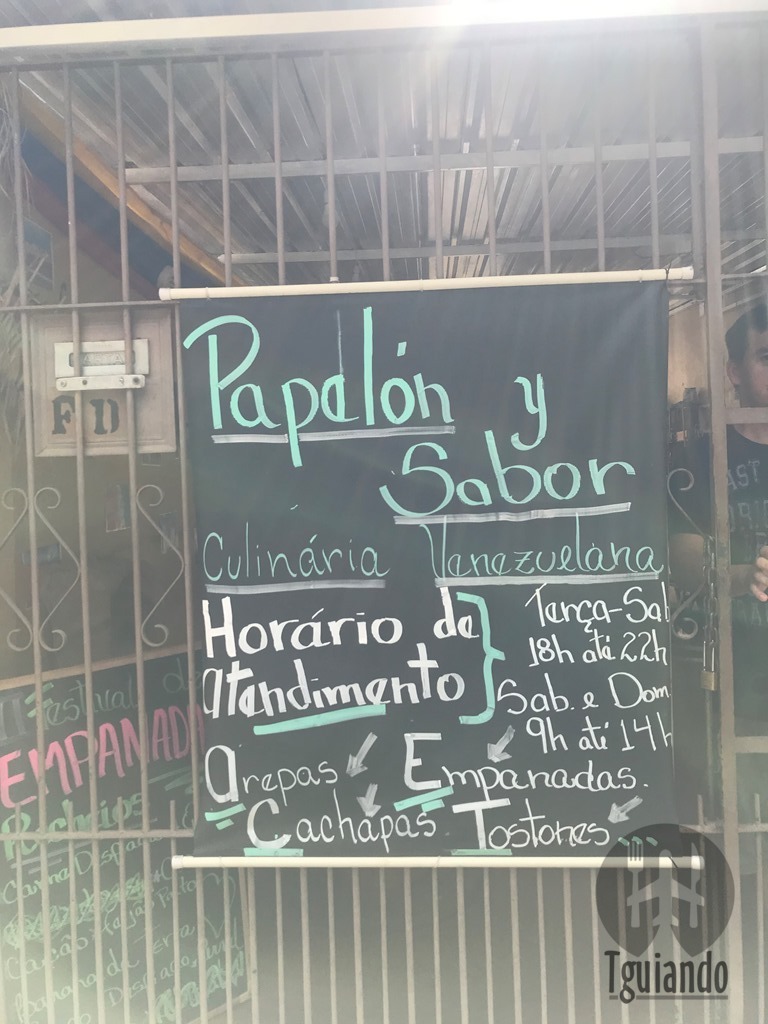 Papelón y
Sabor
Culinária Venezuelana
Horário de
atendimento
Terça-Sab
18h até 22h
Sab. e Dom
9h até 14h
arepas Empanadas.
Cachapas Tostones
FD
Festival d
EMPANAD
Carne
Banana da
Tguiando